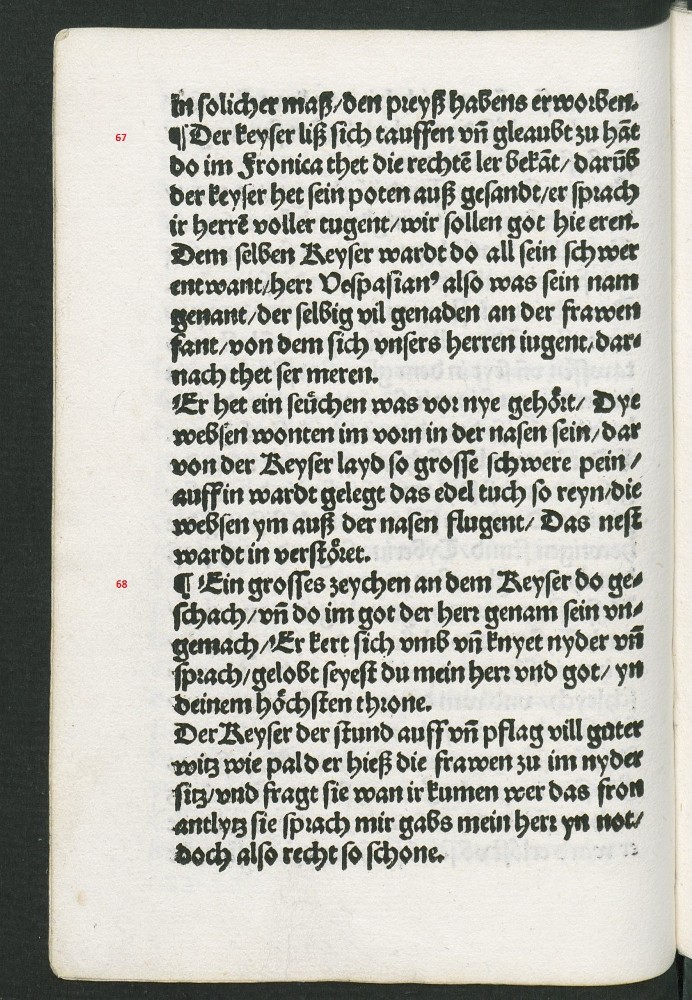 in solicher maß/den preyß habens erworben.
67
¶ Der keyser liß sich tauffen vñ gleaubt zu hãt
do im Fronica thet die rechtẽ ler bekãt/ darũb
der keyser het sein poten auß gesandt/er sprach
ir herrẽ voller tugent/wir sollen got hie eren.
Dem selben Keyser wardt do all sein schwer
entwant/herr Vespasianꝰ also was sein nam
genant/der selbig vil genaden an der frawen
fant/von dem sich vnsers herren iugent/dar⸗
nach thet ser meren.
Er het ein seüchen was vor nye gehört/ Dye
websen wonten im vorn in der nasen sein/dar
von der Keyser layd so grosse schwere pein/
auff in wardt gelegt das edel tuch so reyn/die
websen ym auß der nasen flugent/ Das nest
wardt in verstöret.
68
¶ Ein grosses zeychen an dem Keyser do ge⸗
schach/vñ do im got der herr genam sein vn⸗
gemach/Er kert sich vmb vñ knyet nyder vñ
sprach/gelobt seyest du mein herr vnd got/ yn
deinem höchsten throne.
Der Keyser der stund auff vñ pflag vill guter
witz wie pald er hieß die frawen zu im nyder
sitz/vnd fragt sie wan ir kumen wer das fron
antlytz sie sprach mir gabs mein herr yn not/
doch also recht so schone.